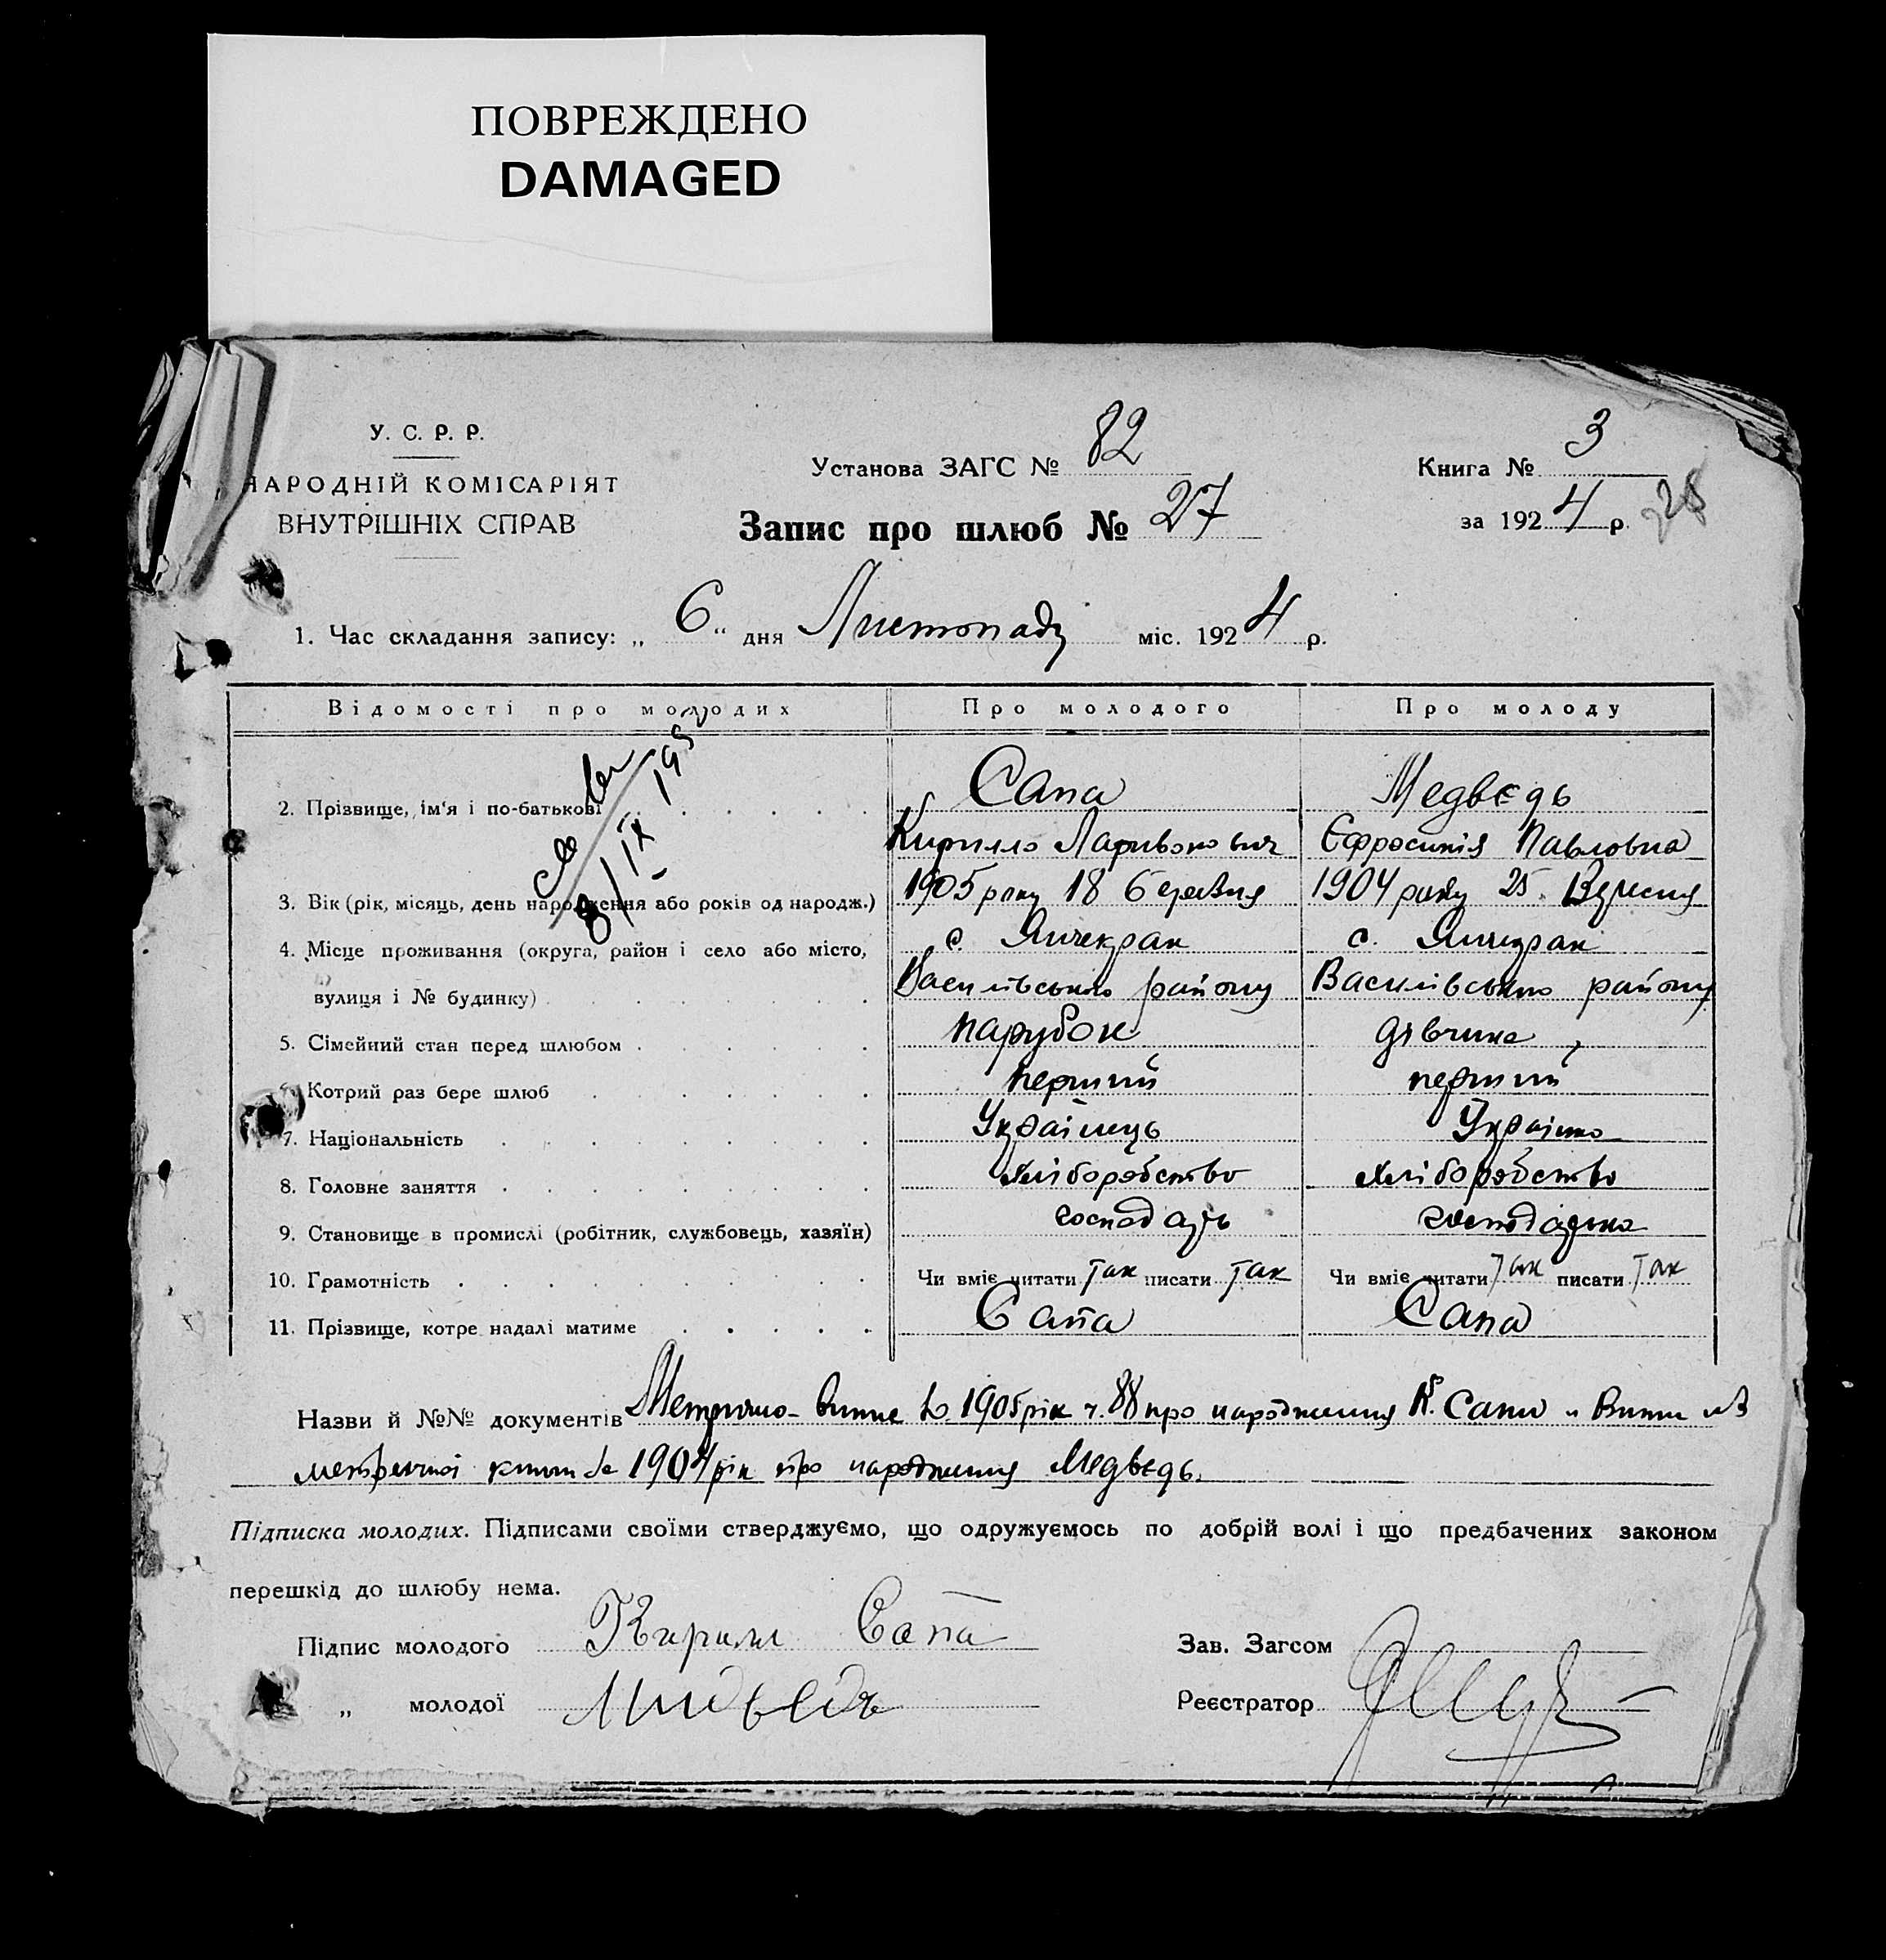 ПОВРЕЖДЕНО
DAMAGED
У. С. Р. Р.
НАРОДНІЙ КОМІСАРІЯТ
ВНУТРІШНІХ СПРАВ
Установа ЗАГС № 82
Запис про шлюб № 27
Книга № 3
за 1924 р.
1. Час складання запису: „ 6 “ дня Листопаду міс. 1924 р.
Відомості про молодих Про молодого Про молоду
2. Прізвище, ім'я і по-батькові Сапа Медвєдь
Кирилло Ларивонович Єфросинія Павловна
3. Вік (рік, місяць, день народження або років од народж.) 1905 року 18 березня 1904 року 25 Вересня
4. Місце проживання (округа, район і село або місто, с. Янчекрак с. Янчекрак
вулиця і № будинку) Василівського району Василівського району
5. Сімейний стан перед шлюбом парубок дівчина
6. Котрий раз бере шлюб перший перший
7. Національність Українець Українка
8. Головне заняття Хліборобство Хліборобство
9. Становище в промислі (робітник, службовець, хазяїн) господарь господарка
10. Грамотність Чи вміє читати так писати так Чи вміє читати так писати так
11. Прізвище, котре надалі матиме Сапа Сапа
Назви й №№ документів Метрична випис 1905 рік ч. 88 про народження К. Сапи и Випис из
метричної книги за 1904 рік про народження Медвєдь.
Підписка молодих. Підписами своїми стверджуємо, що одружуємось по добрій волі і що предбачених законом
перешкід до шлюбу нема.
Підпис молодого Кирилл Сапа Зав. Загсом
„ молодої Мидведь Реєстратор
8/IX